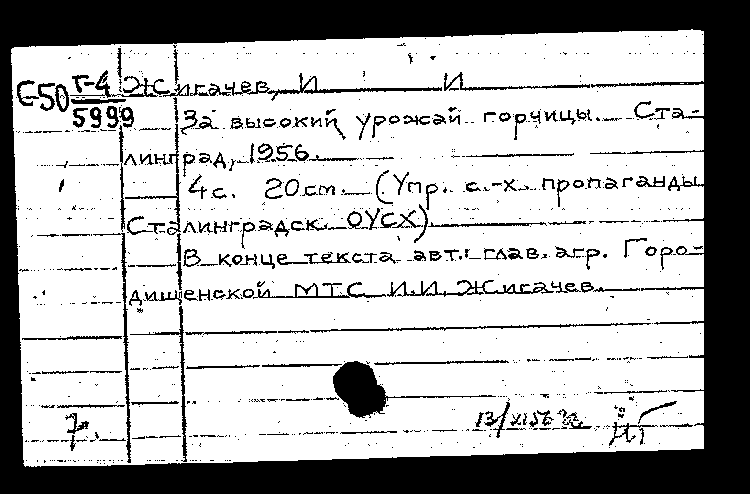 С-50 Г-4 Жигачев, И И
5999
За высокий урожай горчицы. Ста-
линград, 1956.
4 с. 20 см. (Упр. с.-х. пропаганды
Сталинградск. ОУСХ)
В конце текста авт.: глав. агр. Горо-
дищенской МТС И.И. Жигачев.